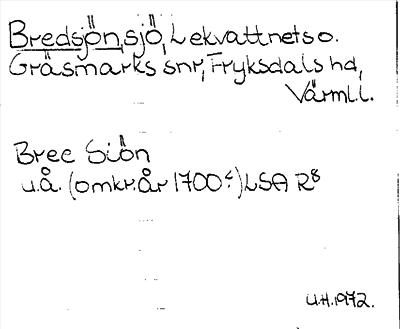 Bredsjön, sjö, Lekvattnets o.
Gräsmarks snr, Fryksdals hd,
Värml.l.
Bree Siön
u.å. (omkr. år 1700 c) LSA R8
U.H. 1972.